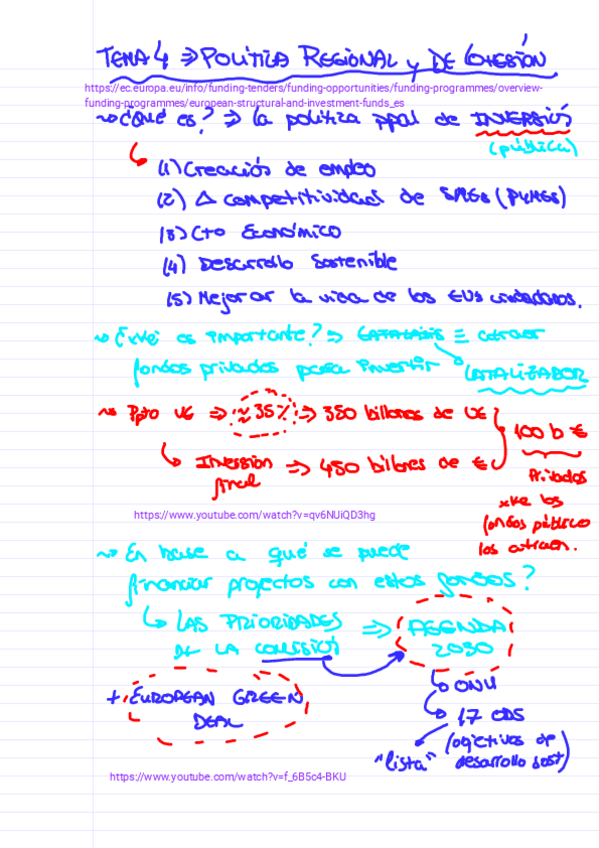 TEMA 4 ⇒ POLÍTICA REGIONAL y DE COHESIÓN
https://ec.europa.eu/info/funding-tenders/funding-opportunities/funding-programmes/overview-
funding-programmes/european-structural-and-investment-funds_es
~ ¿Qué es? ⇒ la política ppal de INVERSIÓN
(pública)
(1) Creación de empleo
(2) Δ competitividad de SMEs (PYMES)
(3) Cto Económico
(4) Desarrollo Sostenible
(5) Mejorar la vida de los EUs ciudadanos.
~ ¿Xké es importante? ⇒ CATALISIS ≡ atraer
fondos privados para invertir
CATALIZADOR
~ Ppto UE ⇒ ≈ 35% ⇒ 350 billones de U€
100 b €
↳ Inversión ⇒ 450 billones de €
final
Privados
xke los
fondos público
los atraen.
https://www.youtube.com/watch?v=qv6NUiQD3hg
~ En base a qué se puede
financiar projectos con estos fondos?
↳ LAS PRIORIDADES ⇒ AGENDA
DE LA COMISIÓN 2030
↳ ONU
+ EUROPEAN GREEN
DEAL
↳ 17 ODS
"lista" (objetivos de
desarrollo sost)
https://www.youtube.com/watch?v=f_6B5c4-BKU